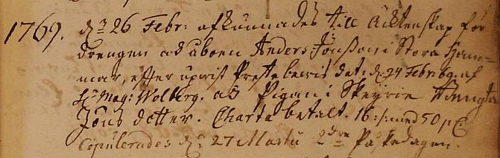 1769. d: 26 Febr: afkunnades till Äcktenskap för
drengen ad åboen Anders Jönsson i Stora Ham=
mar, efter uprist Preste bewis dat: d: 24 Feb: 69. af
H: Mag: Wolberg. ad Pigan i Skeÿrie
Jöns dotter. Charta betalt. 16: s: med 50 pC
Copulerades d: 27 Martii 2dra Påskedagen.